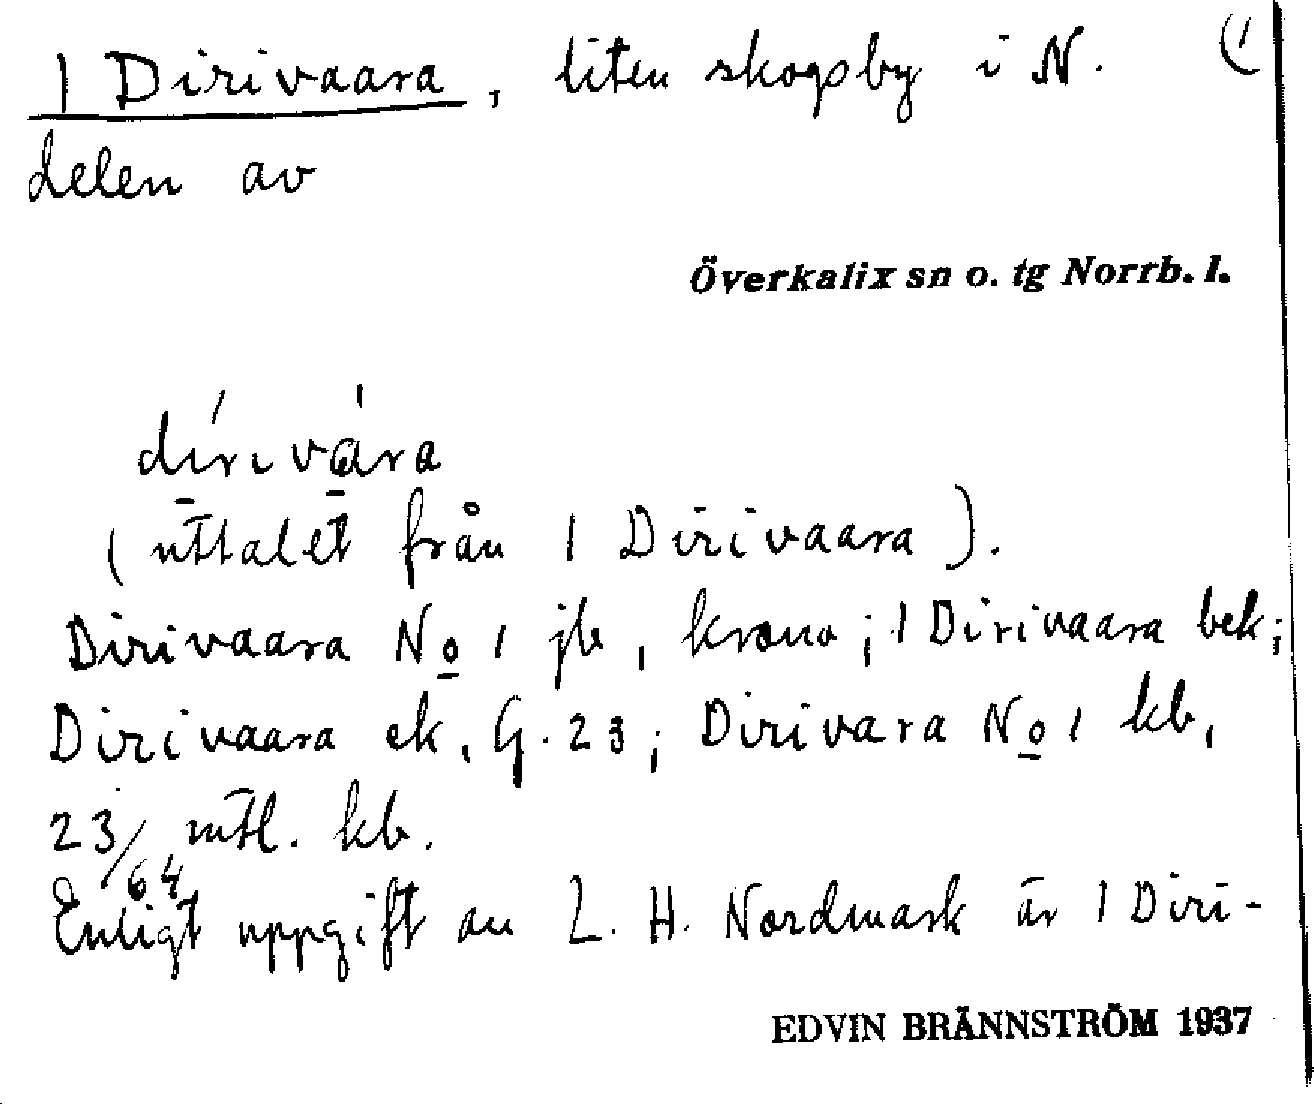 1 Dirivaara, liten skogsby i N. (1
delen av
Överkalix sn o. tg Norrb. l.
dírivára
(uttalet från 1 Dirivaara).
Dirivaara No 1 jb, krono; 1 Dirivaara bek;
Dirivaara ek, G. 23; Dirivara No 1 kb,
23/64 mtl. kb.
Enligt uppgift av L. H. Nordmark är 1 Diri-
EDVIN BRÄNNSTRÖM 1937